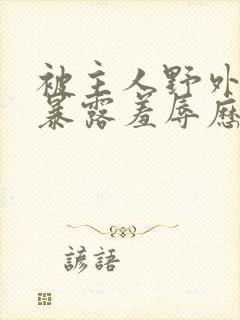 被主人野外
暴露羞辱历
谚語